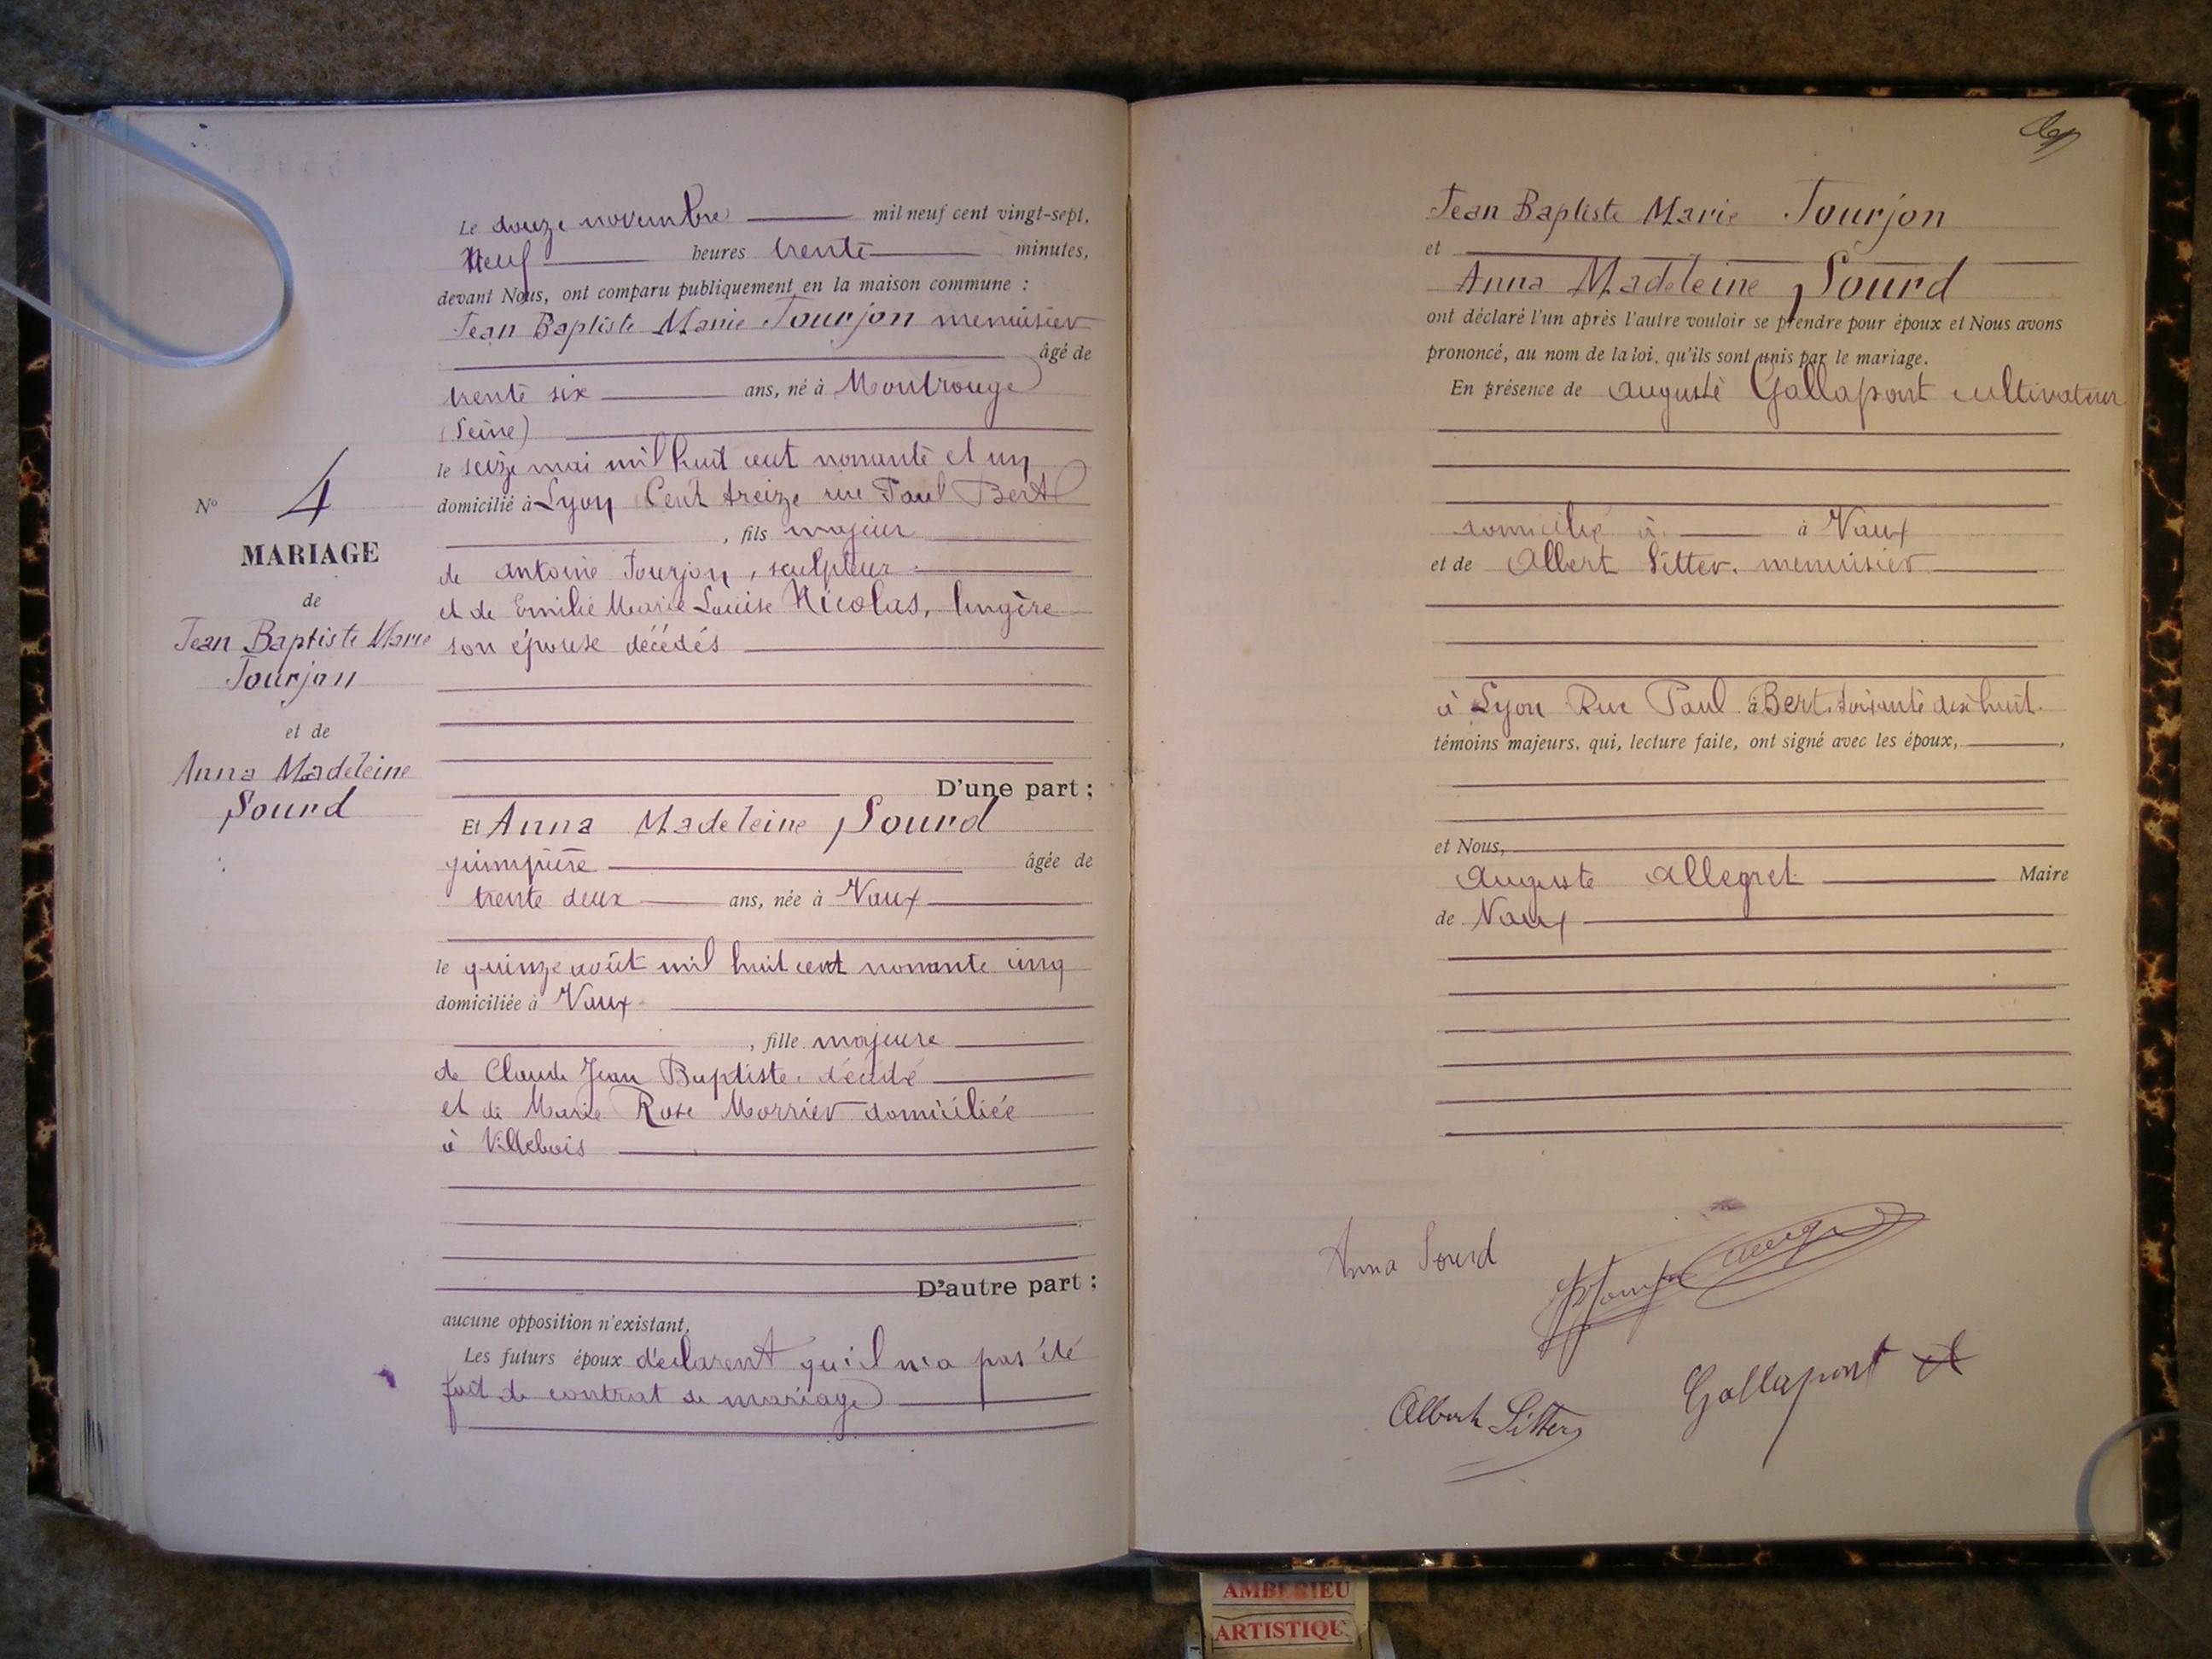 Le douze novembre mil neuf cent vingt-sept,
Neuf heures trente minutes,
devant Nous, ont comparu publiquement en la maison commune :
Jean Baptiste Marie Tourjon menuisier
âgé de
trente six ans, né à Montrouge
(Seine)
le seize mai mil huit cent nonante et un
domicilié à Lyon Cent treize rue Paul Bert
, fils majeur
de Antoine Tourjon, sculpteur
et de Emilie Marie Louise Nicolas, lingère
son épouse décédés
D'une part ;
Et Anna Madeleine Sourd
guimpière âgée de
trente deux ans, née à Vaux
le quinze août mil huit cent nonante cinq
domiciliée à Vaux
, fille majeure
de Claude Jean Baptiste, décédé
et de Marie Rose Morrier domiciliée
à Villebois
D'autre part ;
aucune opposition n'existant,
Les futurs époux déclarent qu'il n'a pas été
fait de contrat de mariage
No 4
MARIAGE
de
Jean Baptiste Marie
Tourjon
et de
Anna Madeleine
Sourd
Jean Baptiste Marie Tourjon
et
Anna Madeleine Sourd
ont déclaré l'un après l'autre vouloir se prendre pour époux et Nous avons
prononcé, au nom de la loi, qu'ils sont unis par le mariage.
En présence de Auguste Gallapont cultivateur
domicilié à à Vaux
et de Albert Sitter, menuisier
à Lyon Rue Paul à Bert soixante dix huit
témoins majeurs, qui, lecture faite, ont signé avec les époux,
et Nous,
Auguste Allegret Maire
de Vaux
Anna Sourd
Albert Sitter
Gallapont A
AMBERIEU
ARTISTIQU